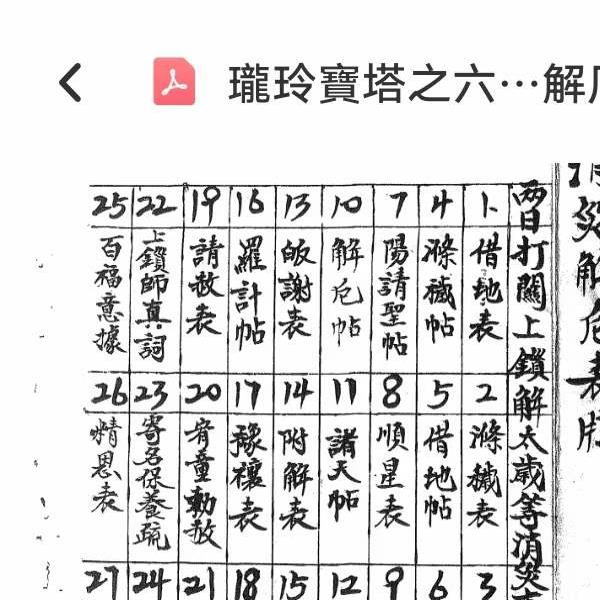 瓏玲寶塔之六…解厄
消災解厄表牘
兩日打關上鎖解太歲等消災
1.
借地表
2
滌穢表
3
4
滌穢帖
5
借地帖
6
7
陽請聖帖
8
順星表
9
10
解厄帖
11
諸天帖
12
13
皈謝表
14
附解表
15
16
羅計帖
17
豫禳表
18
19
請赦表
20
宥童勅赦
21
22
上鎖師真詞
23
寄名保養疏
24
25
百福意據
26
精恩表
27